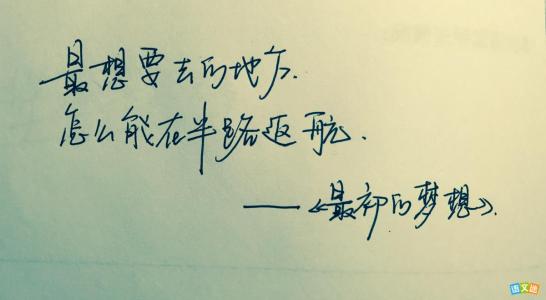 最想要去的地方.
怎么能在半路返航.
——《最初的梦想》.
语文迷